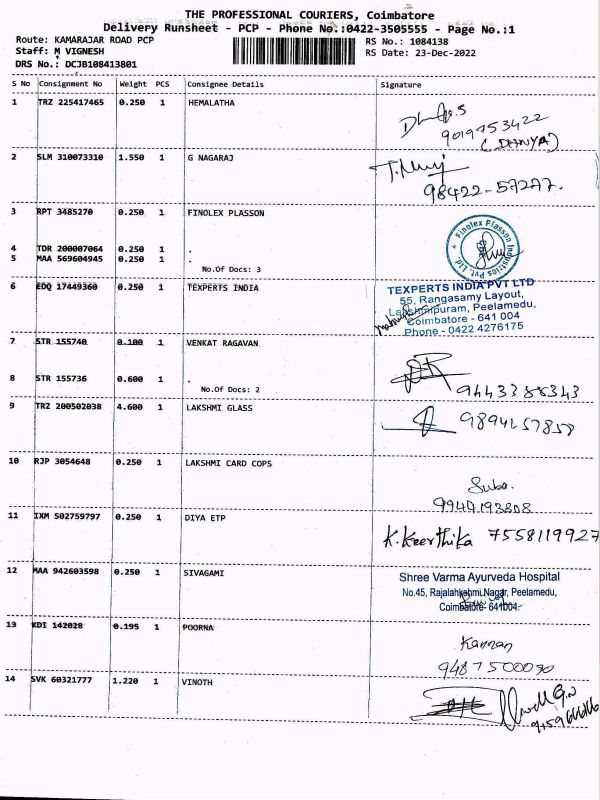 THE PROFESSIONAL COURIERS, Coimbatore
Delivery Runsheet - PCP - Phone No.:0422-3505555 - Page No.:1
Route: KAMARAJAR ROAD PCP
Staff: M VIGNESH
DRS No.: DCJB108413801
RS No.: 1084138
RS Date: 23-Dec-2022
S No Consignment No Weight PCS Consignee Details Signature
1 TRZ 225417465 0.250 1 HEMALATHA
9019753422
(DHNYA)
2 SLM 310073310 1.550 1 G NAGARAJ
98422-57277.
3 RPT 3485270 0.250 1 FINOLEX PLASSON
Finolex Plasson Industries Pvt. Ltd.
4 TDR 200007064 0.250 1 .
5 MAA 569604945 0.250 1 .
No.Of Docs: 3
6 EDQ 17449360 0.250 1 TEXPERTS INDIA
TEXPERTS INDIA PVT LTD
55, Rangasamy Layout,
Lakshmipuram, Peelamedu,
Coimbatore - 641 004
Phone - 0422 4276175
7 STR 155740 0.100 1 VENKAT RAGAVAN
8 STR 155736 0.600 1 .
No.Of Docs: 2
9443388343
9 TRZ 200502038 4.600 1 LAKSHMI GLASS
9894157858
10 RJP 3054648 0.250 1 LAKSHMI CARD COPS
Suba.
9944193808
11 IXM 502759797 0.250 1 DIYA ETP
K.Keerthika 7558119927
12 MAA 942603598 0.250 1 SIVAGAMI
Shree Varma Ayurveda Hospital
No.45, Rajalahkshmi Nagar, Peelamedu,
Coimbatore- 641004.
13 KDI 142028 0.195 1 POORNA
Kannan
9487500090
14 SVK 60321777 1.220 1 VINOTH